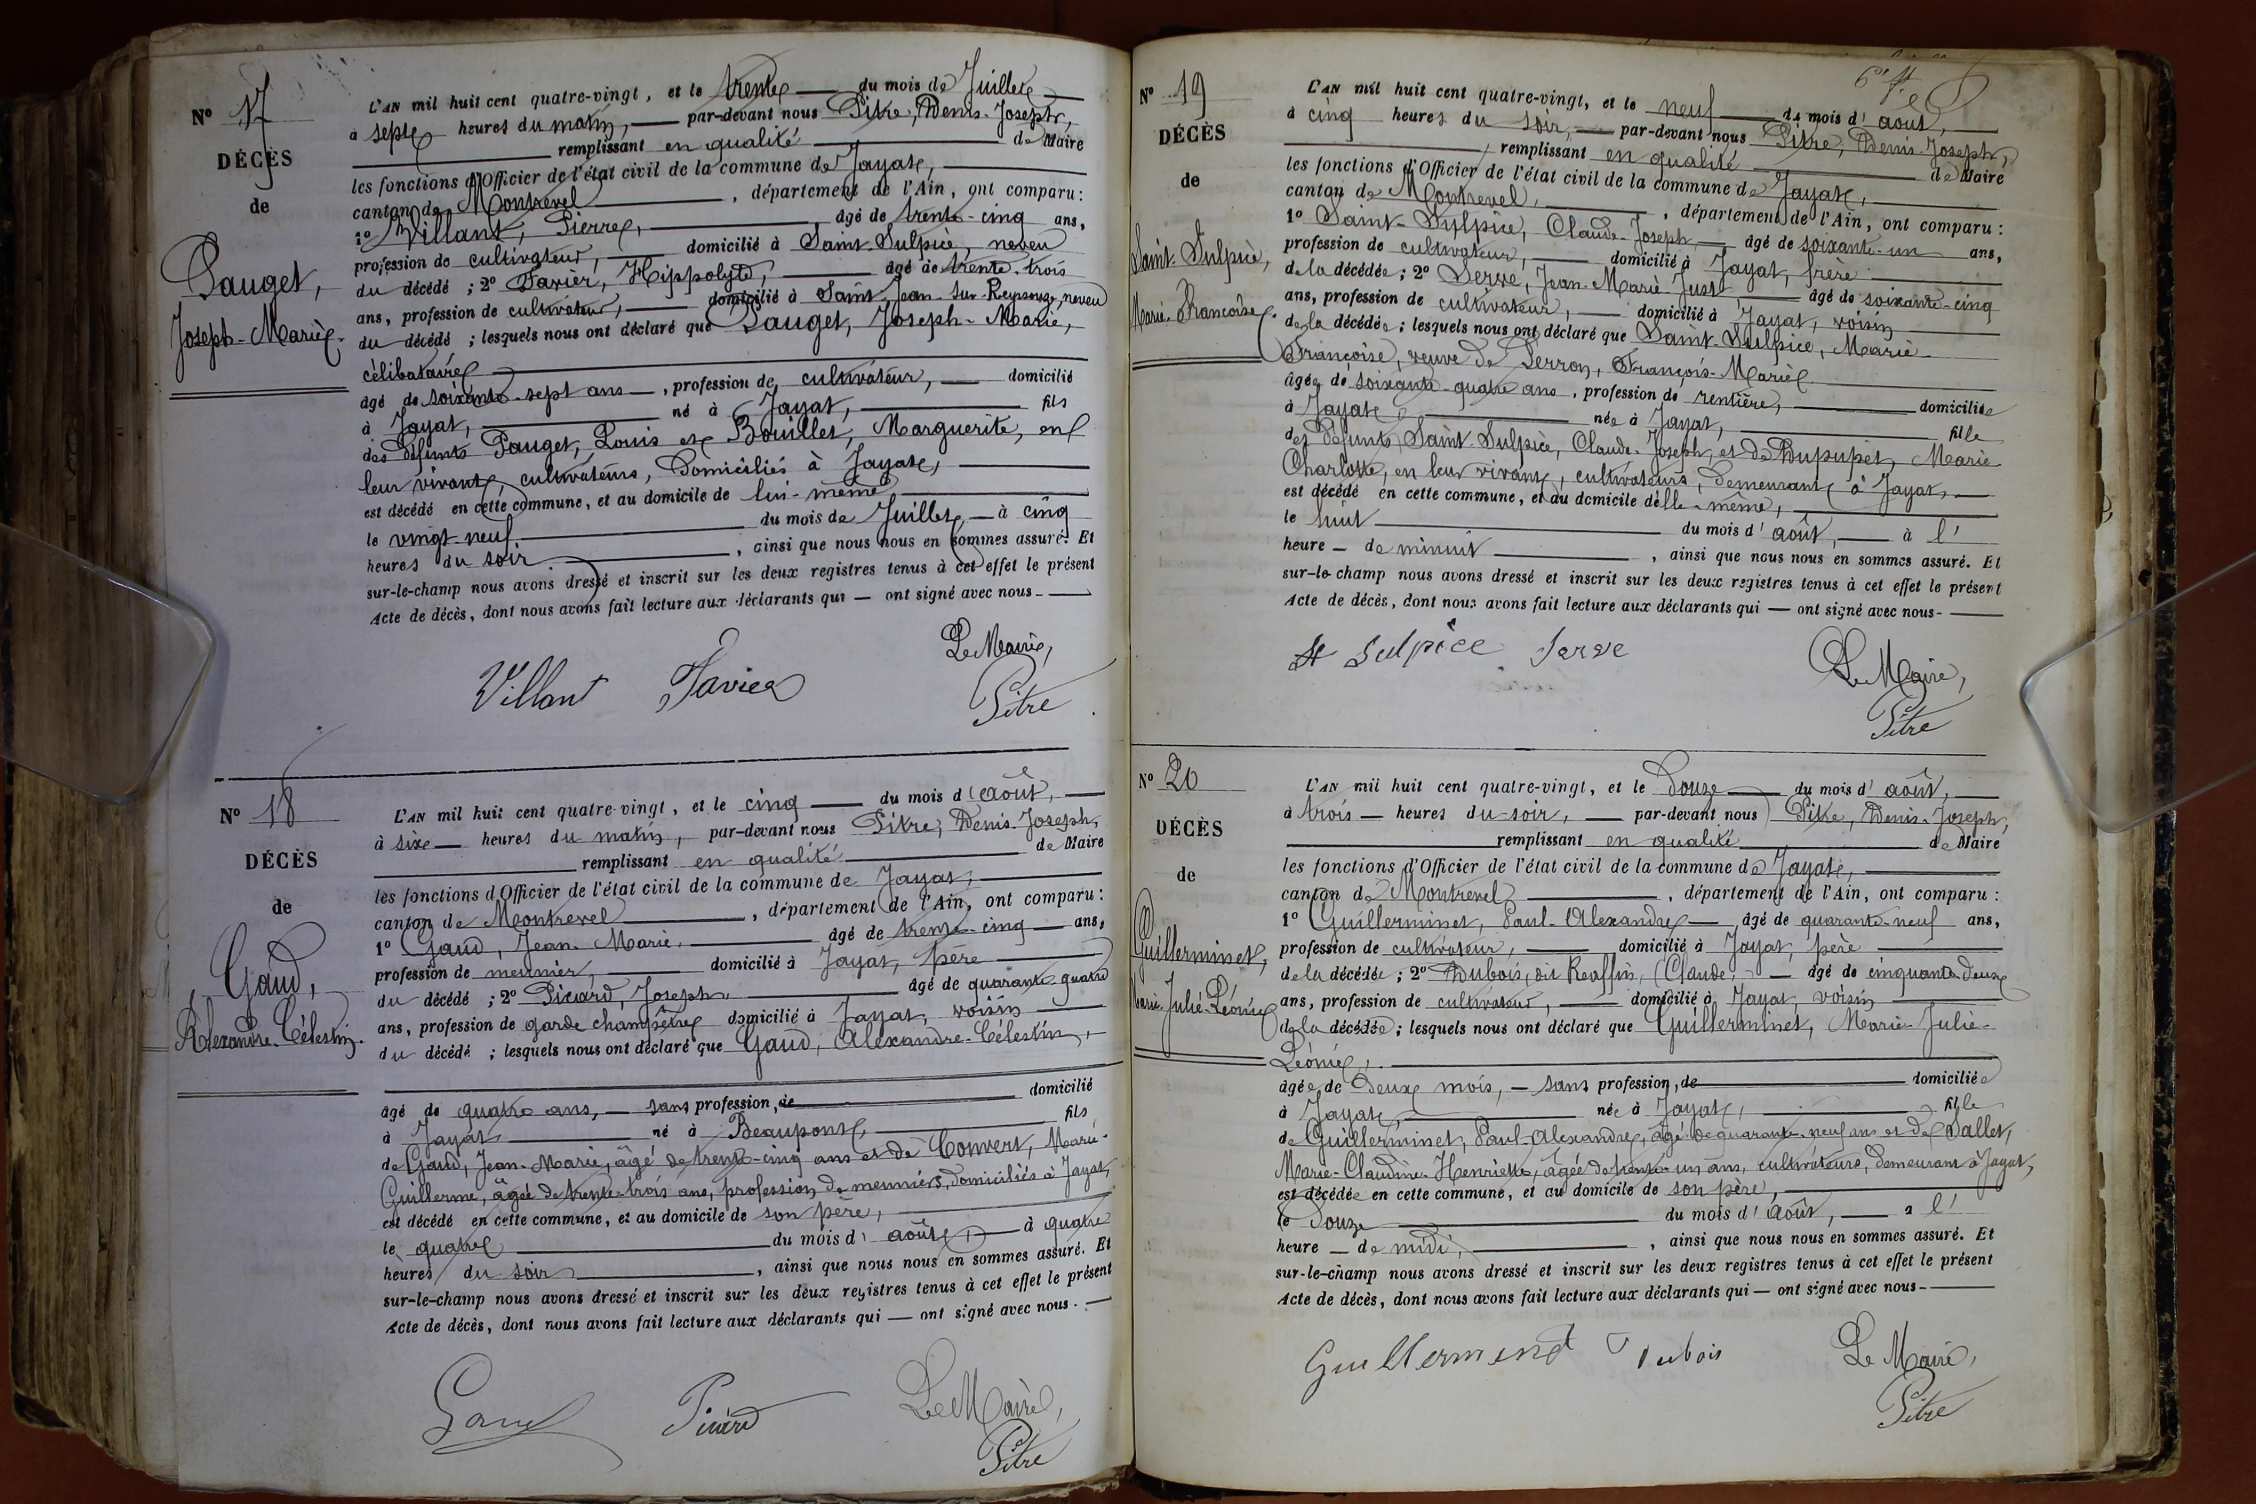 Nº 17
DÉCÈS
de
Pauget,
Joseph-Marie.
L'AN mil huit cent quatre-vingt, et le trente du mois de Juillet
à sept heures du matin, par-devant nous Pitre, Denis-Joseph,
remplissant en qualité de Maire
les fonctions d'Officier de l'état civil de la commune de Jayat,
canton de Montrevel, département de l'Ain, ont comparu:
1º Villant, Pierre, âgé de trente-cinq ans,
profession de cultivateur, domicilié à Saint-Sulpice, neveu
du décédé ; 2º Favier, Hippolyte, âgé de trente-trois
ans, profession de cultivateur, domicilié à Saint-Jean-sur-Reyssouze, neveu
du décédé ; lesquels nous ont déclaré que Pauget, Joseph-Marie,
célibataire
âgé de soixante-sept ans, profession de cultivateur, domicilié
à Jayat, né à Jayat, fils
des défunts Pauget, Louis et Bouillet, Marguerite, en
leur vivant, cultivateurs, domiciliés à Jayat,
est décédé en cette commune, et au domicile de lui-même
le vingt-neuf du mois de Juillet, à cinq
heures du soir, ainsi que nous nous en sommes assuré. Et
sur-le-champ nous avons dressé et inscrit sur les deux registres tenus à cet effet le présent
Acte de décès, dont nous avons fait lecture aux déclarants qui — ont signé avec nous.
Le Maire,
Villant Favier Pitre
Nº 18
DÉCÈS
de
Gaud,
Alexandre-Célestin.
L'AN mil huit cent quatre-vingt, et le cinq du mois d'août,
à six heures du matin, par-devant nous Pitre, Denis-Joseph,
remplissant en qualité de Maire
les fonctions d'Officier de l'état civil de la commune de Jayat,
canton de Montrevel, département de l'Ain, ont comparu:
1º Gaud, Jean-Marie, âgé de trente-cinq ans,
profession de meunier, domicilié à Jayat, père
du décédé ; 2º Picard, Joseph, âgé de quarante-quatre
ans, profession de garde champêtre domicilié à Jayat, voisin
du décédé ; lesquels nous ont déclaré que Gaud, Alexandre-Célestin,
âgé de quatre ans, sans profession, de domicilié
à Jayat, né à Beaupont, fils
de Gaud, Jean-Marie, âgé de trente-cinq ans et de Convert, Marie-
Guillerme, âgée de trente-trois ans, profession de meuniers, domiciliés à Jayat,
est décédé en cette commune, et au domicile de son père,
le quatre du mois d'août, à quatre
heures du soir, ainsi que nous nous en sommes assuré. Et
sur-le-champ nous avons dressé et inscrit sur les deux registres tenus à cet effet le présent
Acte de décès, dont nous avons fait lecture aux déclarants qui — ont signé avec nous.
Gaud Picard Le Maire,
Pitre
Nº 19
DÉCÈS
de
Saint-Sulpice,
Marie-Françoise.
L'AN mil huit cent quatre-vingt, et le neuf du mois d'août,
à cinq heures du soir, par-devant nous Pitre, Denis-Joseph,
remplissant en qualité de Maire
les fonctions d'Officier de l'état civil de la commune de Jayat,
canton de Montrevel, département de l'Ain, ont comparu:
1º Saint-Sulpice, Claude-Joseph, âgé de soixante-un ans,
profession de cultivateur, domicilié à Jayat, frère
de la décédée ; 2º Serve, Jean-Marie-Just âgé de soixante-cinq
ans, profession de cultivateur, domicilié à Jayat, voisin
de la décédée ; lesquels nous ont déclaré que Saint-Sulpice, Marie-
Françoise, veuve de Perron, François-Marie
âgée de soixante-quatre ans, profession de rentière, domiciliée
à Jayat, née à Jayat, fille
des défunts Saint-Sulpice, Claude-Joseph, et de Dupupet, Marie
Charlotte, en leur vivant, cultivateurs, demeurant à Jayat,
est décédé en cette commune, et au domicile d'elle-même,
le huit du mois d'août, à l'
heure — de minuit, ainsi que nous nous en sommes assuré. Et
sur-le-champ nous avons dressé et inscrit sur les deux registres tenus à cet effet le présent
Acte de décès, dont nous avons fait lecture aux déclarants qui — ont signé avec nous-
St Sulpice Serve Le Maire,
Pitre
Nº 20
DÉCÈS
de
Guillerminet,
Marie-Julie-Léonie
L'AN mil huit cent quatre-vingt, et le Douze du mois d'août,
à trois heures du soir, par-devant nous Pitre, Denis-Joseph,
remplissant en qualité de Maire
les fonctions d'Officier de l'état civil de la commune de Jayat,
canton de Montrevel, département de l'Ain, ont comparu:
1º Guillerminet, Paul-Alexandre, âgé de quarante-neuf ans,
profession de cultivateur, domicilié à Jayat, père
de la décédée ; 2º Dubois, dit Reaffin, Claude, âgé de cinquante-deux
ans, profession de cultivateur, domicilié à Jayat, voisin
de la décédée ; lesquels nous ont déclaré que Guillerminet, Marie-Julie-
Léonie,
âgée de deux mois, — sans profession, de domiciliée
à Jayat, née à Jayat, fille
de Guillerminet, Paul-Alexandre, âgé de quarante-neuf ans et de Vallet,
Marie-Claudine-Henriette, âgée de trente-un ans, cultivateurs, demeurant à Jayat,
est décédée en cette commune, et au domicile de son père,
le Douze du mois d'août, à l'
heure — de midi, ainsi que nous nous en sommes assuré. Et
sur-le-champ nous avons dressé et inscrit sur les deux registres tenus à cet effet le présent
Acte de décès, dont nous avons fait lecture aux déclarants qui — ont signé avec nous-
Guillerminet Dubois Le Maire,
Pitre